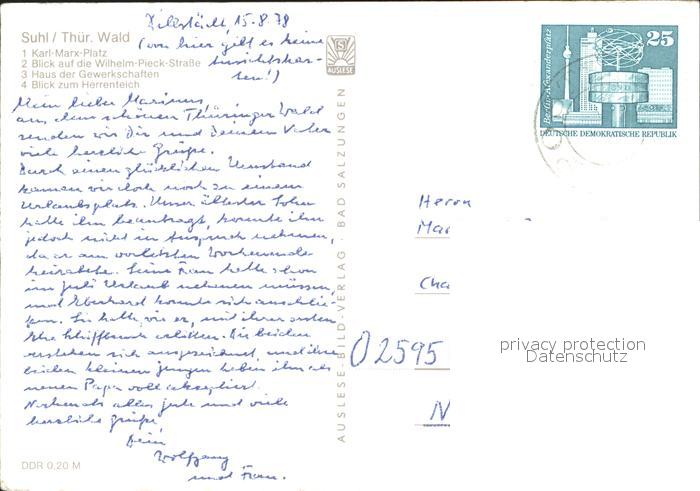 Suhl / Thür. Wald
1 Karl-Marx-Platz
2 Blick auf die Wilhelm-Pieck-Straße
3 Haus der Gewerkschaften
4 Blick zum Herrenteich
15.8.78
(von hier gibt es keine
Ansichtskar-
ten!)
AUSLESE
Mein lieber Marinus,
aus dem schönen Thüringer Wald
senden wir Dir und Deinem Vater
viele herzliche Grüße.
Durch einen glücklichen Umstand
kamen wir doch noch zu einem
Urlaubsplatz. Unser ältester Sohn
hatte ihn beantragt, konnte ihn
jedoch nicht in Anspruch nehmen,
da er am vorletzten Wochenende
heiratete. Seine Frau hatte schon
im Juli Urlaub nehmen müssen,
und Eberhard konnte sich anschlie-
ßen. Sie hatte, wie er, mit ihrer ersten
Ehe Schiffbruch erlitten. Die beiden
verstehen sich ausgezeichnet, und ihre
beiden kleinen Jungen haben ihn als
neuen Papa voll akzeptiert.
Nochmals alles Gute und viele
herzliche Grüße
Dein
Wolfgang
und Frau.
DDR 0,20 M
AUSLESE-BILD-VERLAG · BAD SALZUNGEN
Berlin-Alexanderplatz
25
DEUTSCHE DEMOKRATISCHE REPUBLIK
Herrn
Mar
Cha
02595
N
privacy protection
Datenschutz